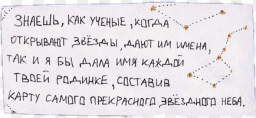 ЗНАЕШЬ, КАК УЧЕНЫЕ, КОГДА
ОТКРЫВАЮТ ЗВЁЗДЫ, ДАЮТ ИМ ИМЕНА,
ТАК И Я БЫ ДАЛА ИМЯ КАЖДОЙ
ТВОЕЙ РОДИНКЕ, СОСТАВИВ
КАРТУ САМОГО ПРЕКРАСНОГО ЗВЁЗДНОГО НЕБА.